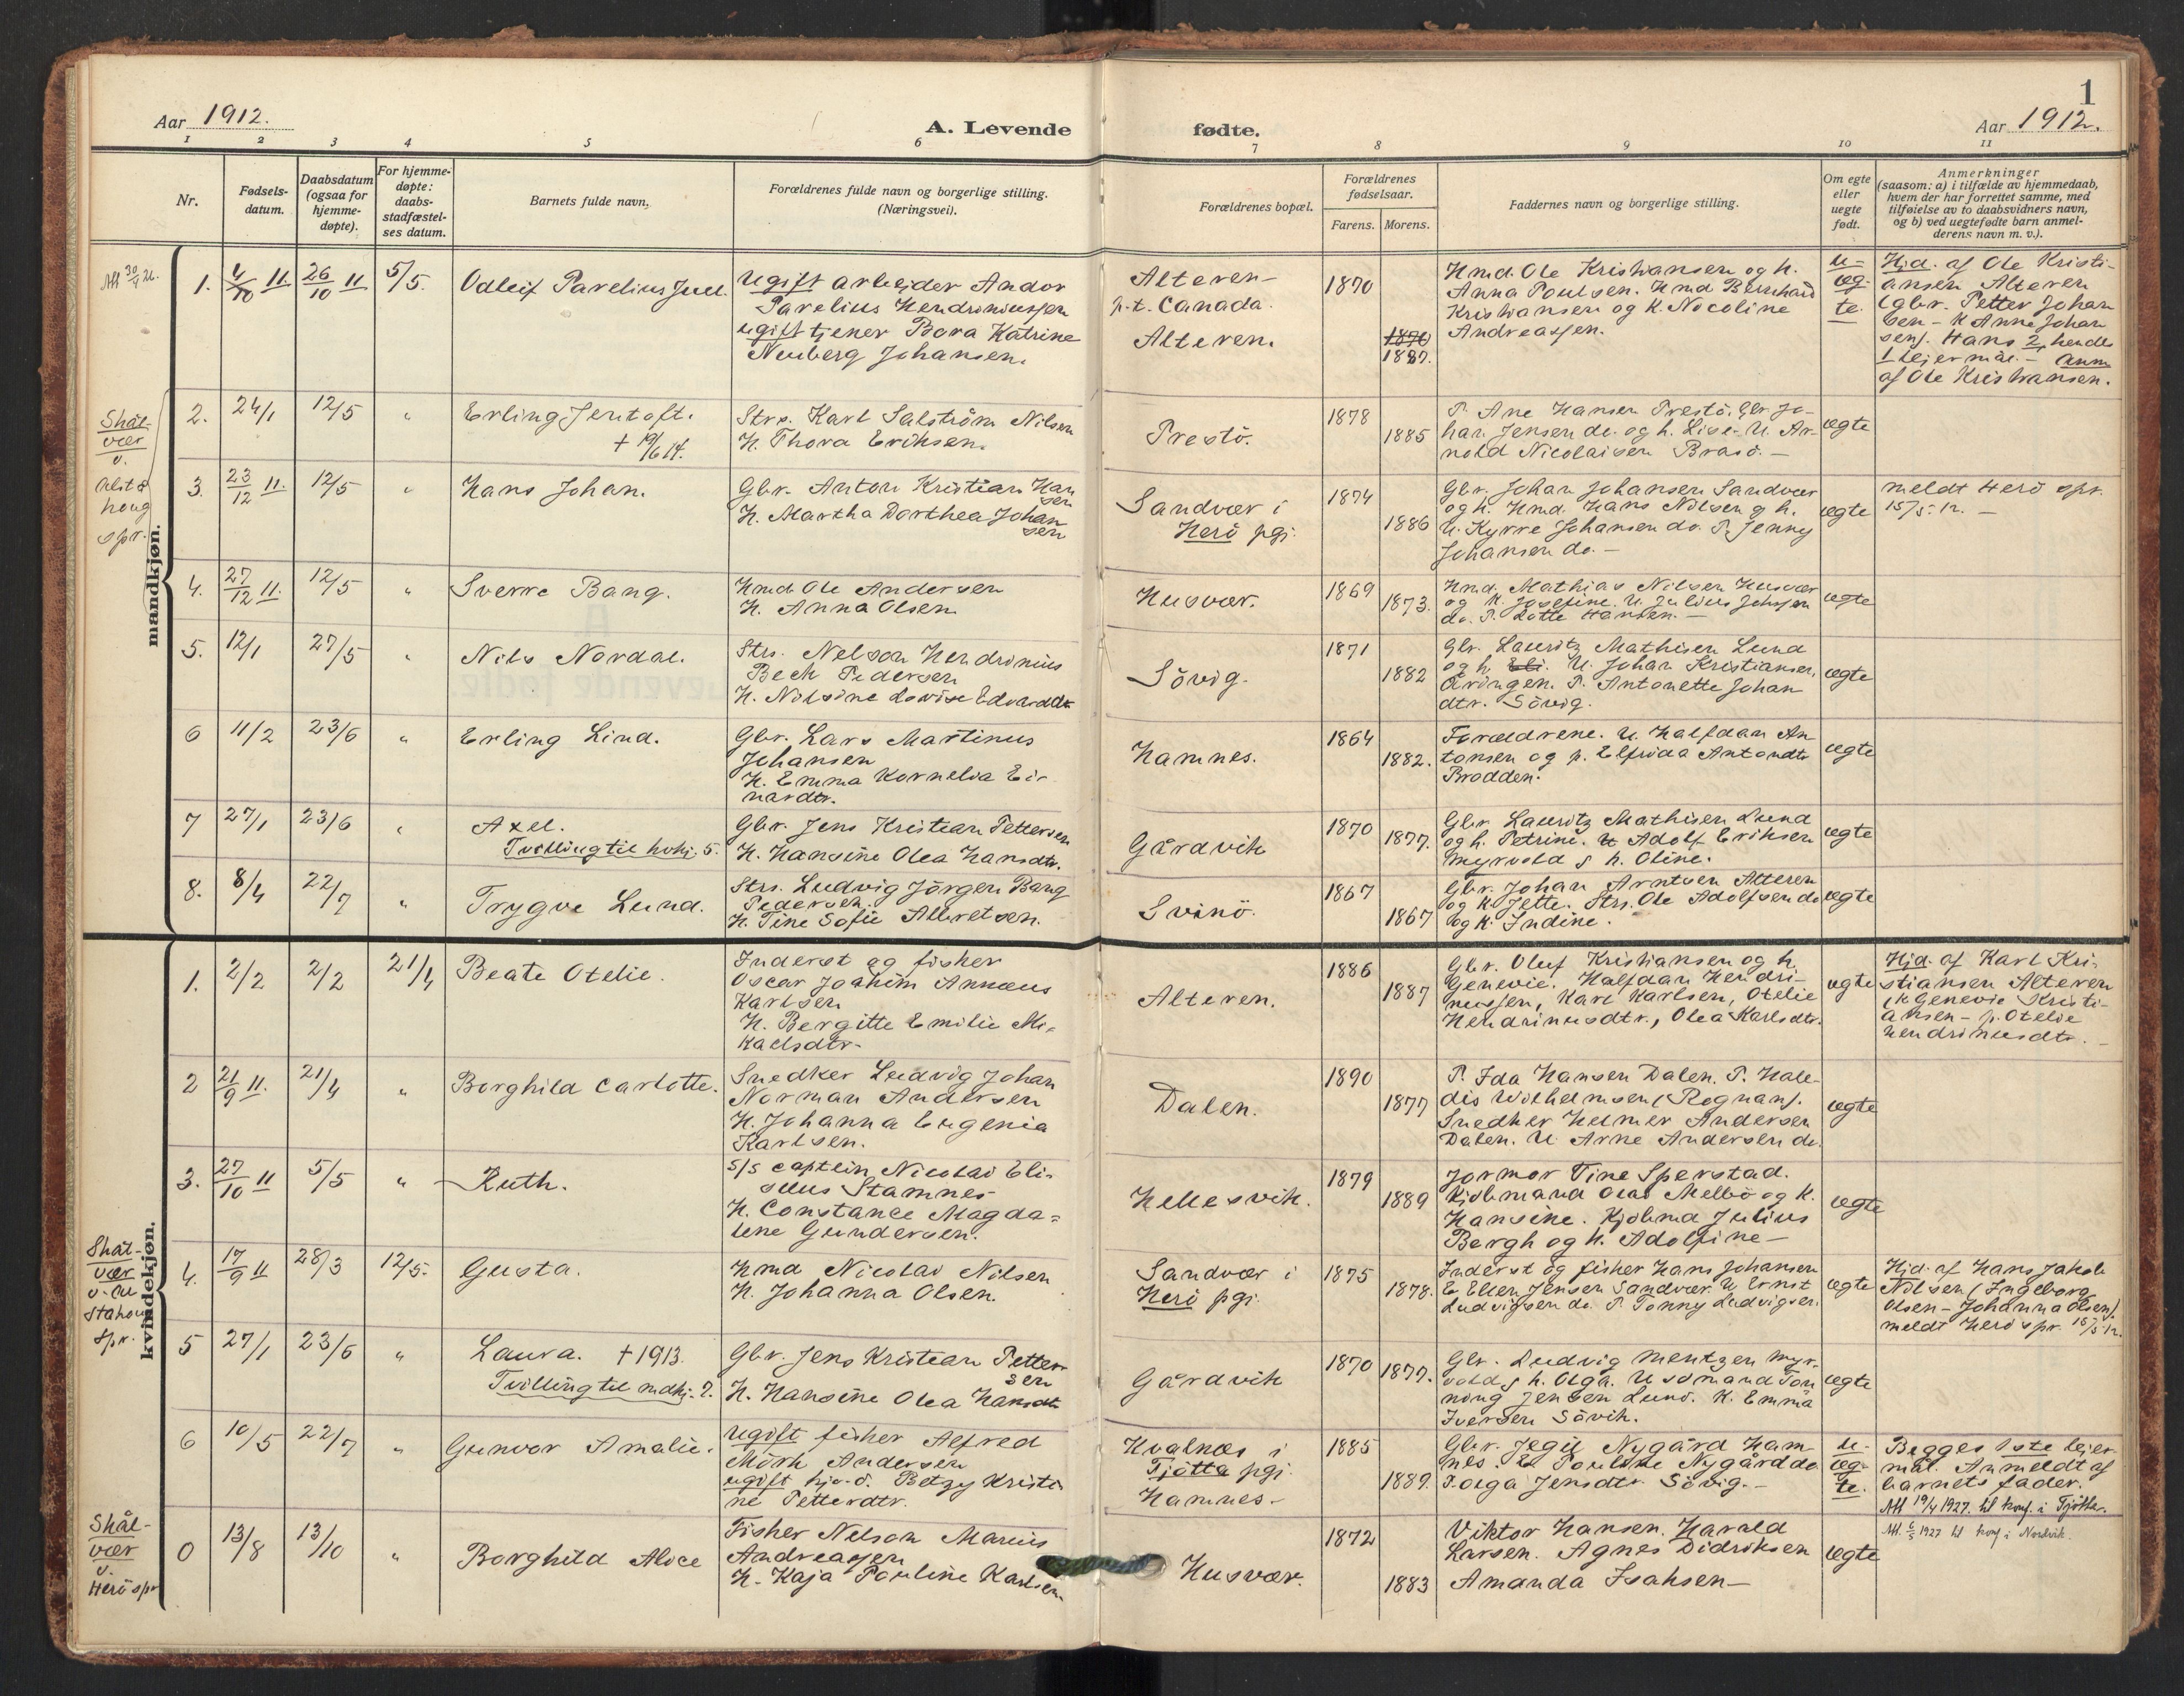 Aar 1912.
A. Levende
fødte.
1
Aar 1912.
1 2 3 4 5 6 7 8 9 10 11
Nr.
Fødsels-
datum.
Daabsdatum
(ogsaa for
hjemme-
døpte).
For hjemme-
døpte:
daabs-
stadfæstel-
ses datum.
Barnets fulde navn.
Forældrenes fulde navn og borgerlige stilling.
(Næringsvei).
Forældrenes bopæl.
Forældrenes
fødselsaar.
Farens. Morens.
Faddernes navn og borgerlige stilling.
Om egte
eller
uegte
født.
Anmerkninger
(saasom: a) i tilfælde av hjemmedaab,
hvem der har forrettet samme, med
tilføielse av to daabsvidners navn,
og b) ved uegtefødte barn anmel-
derens navn m. v.).
mandkjøn.
1. 4/10 11. 26/10 11 5/5. Odleif Parelius Juul
ugift arbejder Andor
Parelius Hendriniussen
ugift tjener Bora Katrine
Neuberg Johansen.
Alteren-
p.t. Canada.
Alteren.
1870
1870
1887.
Hmd. Ole Kristiansen og h.
Anna Poulsen. Hmd Bernhard
Kristiansen og K. Nicoline
Andreassen.
u-
æg-
te.
Hjd. af Ole Kristi-
ansen Alteren
(gbr. Petter Johan
sen - K Anne Johan
sen). Hans 2, hendes
1 lejermål. - Anm
af Ole Kristiansen.
Skål-
vær
v.
Alsta
houg
spr.
2. 24/1 12/5 " Erling Jentoft.
+ 19/6 14.
Strs. Karl Salström Nilsen
H. Thora Eriksen.
Prestö.
1878
1885
P. Ane Hansen Prestö. Gbr. Jo-
han Jensen do. og h. Lise. U. Ar-
nold Nicolaisen Brasö. -
ægte
3. 23/12 11. 12/5 " Hans Johan.
Gbr. Anton Kristian Han
sen
H. Martha Dorthea Johan
sen
Sandvær i
Herö pgj.
1874
1886
Gbr. Johan Johansen Sandvær
og h. Hmd. Hans Nilsen og h.
U. Kyrre Johansen do. P. Jenny
Johansen do. -
ægte
meldt Herö spr.
15/5. 12. -
4. 27/12 11. 12/5 " Sverre Bang.
Hmd. Ole Andersen
H. Anna Olsen
Husvær.
1869
1873.
Hmd. Mathias Nilsen Husvær
og K. Josefine. U. Julius Johnsen
do. P. Lotte Hansen. -
ægte
5. 12/1 27/5 " Nils Nordal.
Strs. Nelson Hendrinius
Bech Pedersen
H. Nilsine Lovise Edvardsdtr
Sövig.
1871
1882
Gbr. Lauritz Mathisen Lund
og h. Eli. U. Johan Kristiansen,
P. Antonette Johan
dtr. Sövig.
ægte
6 11/2 23/6 " Erling Lind.
Gbr. Lars Martinus
Johansen
H. Emma Kornelia Ei-
nardtr.
Hamnes.
1864
1882.
Forældrene. U. Halfdan An-
tonsen og p. Elfrida Antondtr
Brodden.
ægte
7 27/1 23/6 " Axel.
Tvilling til kvkj. 5.
Gbr. Jens Kristian Pettersen
H. Hansine Olea Hansdtr.
Gårdvik
1870
1877.
Gbr. Lauritz Mathisen Lund
og h. Petrine. U Adolf Eriksen
Myrvold & h. Oline.
ægte
8. 8/4 22/7 " Trygve Lund.
Strs. Ludvig Jörgen Bang
Pedersen.
H. Tine Sofie Albretsen.
Svinö.
1867
1867
Gbr. Johan Arntsen Alteren
og K. Jette. Strs. Ole Adolfsen do
og K. Indine.
ægte
kvindekjøn.
1. 2/2 2/2 21/4 Beate Otelie.
Inderst og fisker
Oscar Joakim Annæus
Karlsen
H. Bergitte Emilie Mi-
kaelsdtr-
Alteren.
1886
1887
Gbr. Oluf Kristiansen og h.
Genevie. Halfdan Hendri-
nussen, Karl Karlsen, Otelie
Hendrinusdtr., Olea Karlsdtr.
ægte
Hjd. af Karl Kri-
stiansen Alteren
(K Genevie Kristi-
ansen - p. Otelie
Hendrinusdtr. -
2 21/9 11. 21/4 " Borghild Carlotte.
Snedker Ludvig Johan
Norman Andersen
H. Johanna Eugenia
Karlsen.
Dalen.
1890
1877
P. Ida Hansen Dalen. P. Hale-
dis Wilhelmsen (Rognan).
Snedker Helmer Andersen
Dalen. U. Arne Andersen do.
ægte
3. 27/10 11 5/5 " Ruth.
S/S captein Nicolai Eli-
sæus Stamnes
H. Constance Magda-
lene Gundersen.
Hellesvik.
1879
1889
Jormor Tine Sperstad.
Kjöbmand Olas Melbö og K.
Hansine. Kjöbmd Julius
Bergh og K. Adolfine -
ægte
Skål-
vær
v. Al
stahoug
spr.
4. 17/9 11 28/3 12/5. Gusta.
Hmd Nicolai Nilsen
H. Johanna Olsen.
Sandvær i
Herö pgj.
1875
1878.
Inderst og fisker Hans Johansen
E Ellen Jensen Sandvær. U Ernst
Ludvigsen do. P. Tonny Ludvigsen.
ægte
Hjd. af Hans Jakob
Nilsen (Ingeborg
Olsen - Johanna Olsen).
meldt Herö spr. 15/5.12.
5 27/1 23/6 " Laura. + 1913.
Tvilling til mdkj. 7.
Gbr. Jens Kristian Petter
sen
H. Hansine Olea Hansdtr
Gårdvik
1870
1877.
Gbr. Ludvig Mentzen Myr-
vold & h. Olga. U Sömand Ton
Jensen Lund. K. Emma
Iversen Sövik.
ægte
6 10/5 22/7 " Gunvor Amalie.
ugift fisker Alfred
Mörk Andersen
ugift Betzy Kristi
ne Petterdtr.
Hvalnes i
Tjötta pgj.
Hamnes-
1885
1889.
Gbr. Nygård Ham-
nes. Nygård do
P. Olga Jensdtr Sövig. -
u-
æg-
te.
Begges 1ste lejer
mål. Anmeldt af
barnets fader.
Att 19/4 1927. til konf. i Tjötta.
Skål-
vær
v.
Herö spr
0 13/8 13/10 " Borghild Alvce
Fisker Nelson Marius
Andreassen
H. Kaja Pouline Karlsen
Husvær.
1872
1883
Viktor Hansen. Harald
Larsen. Agnes Didriksen
Amanda Isaksen -
ægte
Att. 6/5 1927 til konf i Nordvik.